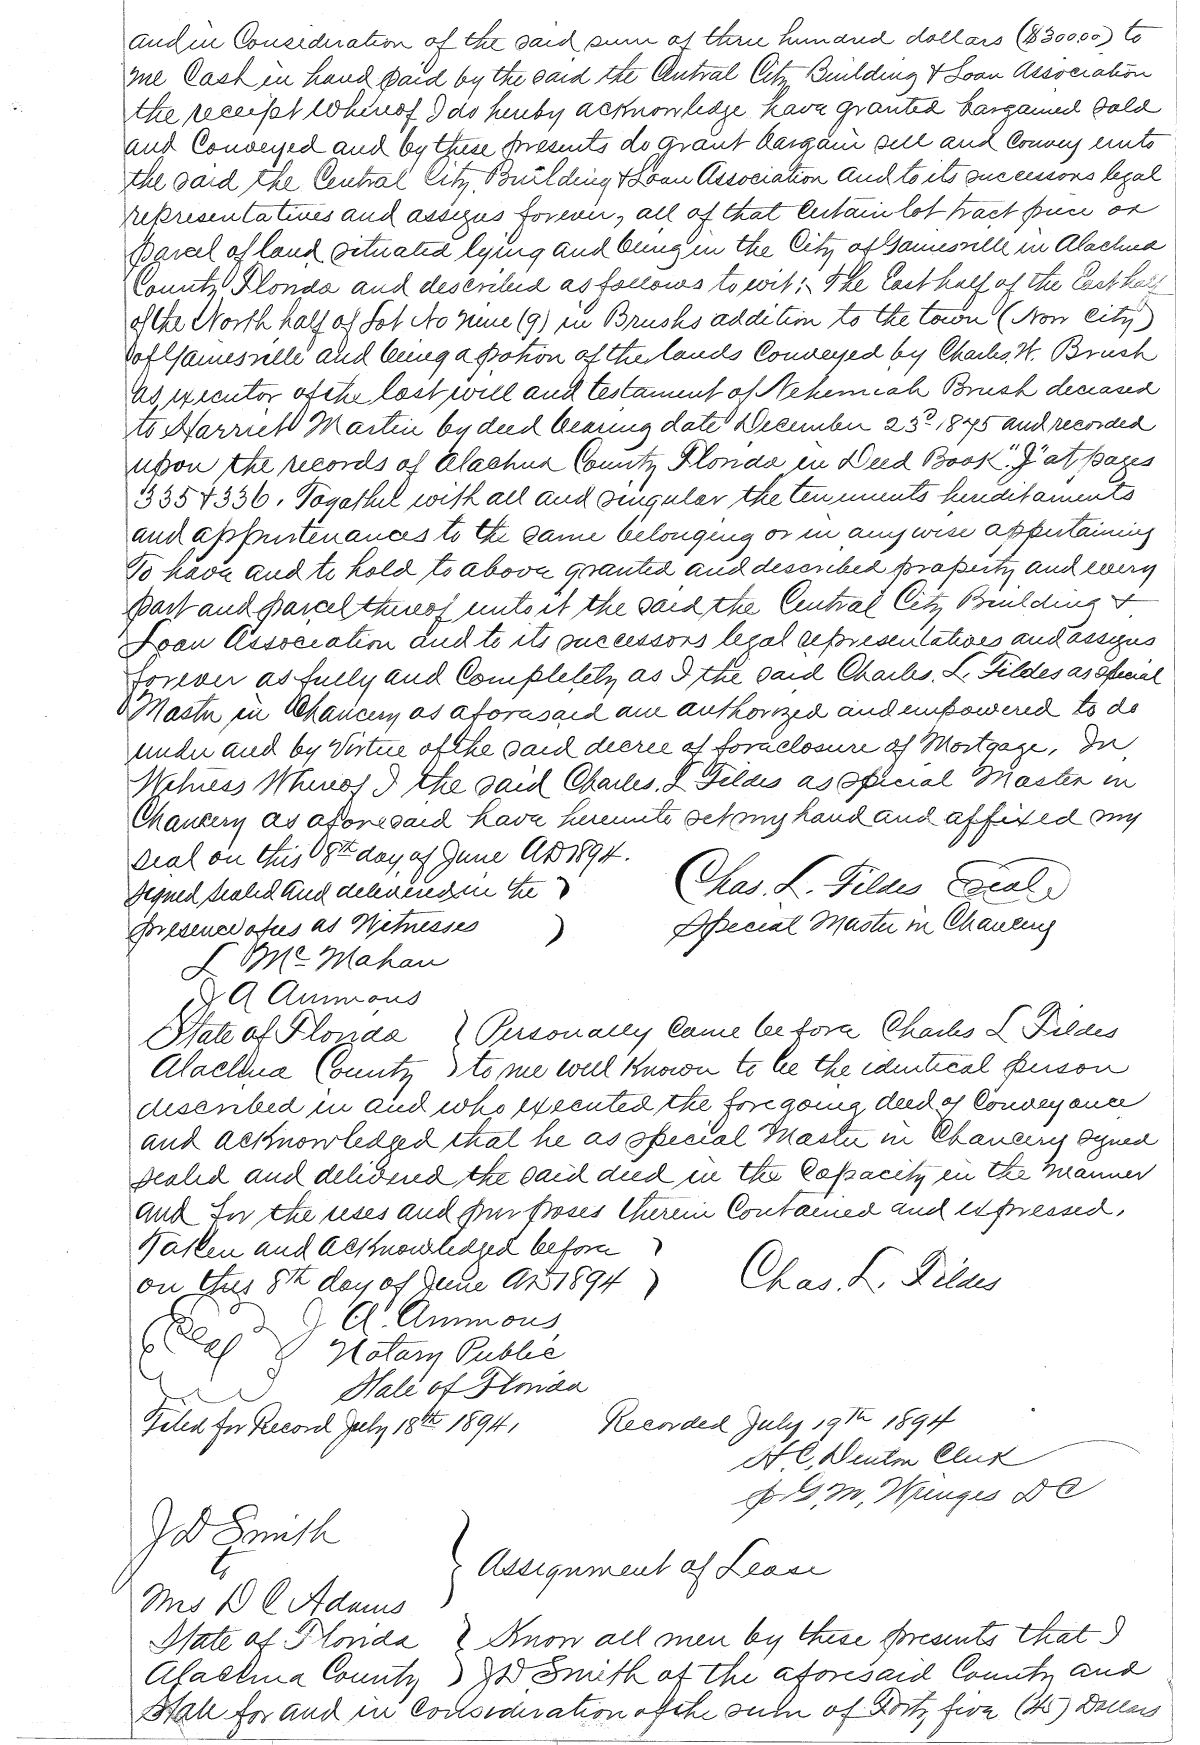 and in Consideration of the said sum of three hundred dollars ($300.00) to
me Cash in hand paid by the said the Central City Building & Loan Association
the receipt whereof I do hereby acknowledge have granted bargained sold
and Conveyed and by these presents do grant bargain sell and convey unto
the said the Central City Building & Loan Association and to its successors legal
representatives and assigns forever, all of that certain lot tract piece or
parcel of land situated lying and being in the City of Gainesville in Alachua
County Florida and described as follows to wit: The East half of the East half
of the North half of Lot No nine (9) in Brushs addition to the town (Now City)
of Gainesville and being a potion of the lands conveyed by Charles. H. Brush
as executor of the last will and testament of Nehemiah Brush deceased
to Harriet Martin by deed bearing date December 23d 1875 and recorded
upon the records of Alachua County Florida in Deed Book "J" at pages
335 & 336. Togather with all and singular the tenements hereditaments
and appurtenances to the same belonging or in anywise appertaining
To have and to hold to above granted and described property and every
part and parcel thereof unto it the said the Central City Building &
Loan Association and to its successors legal representatives and assigns
forever as fully and completely as I the said Charles. L. Fildes as special
Master in Chancery as aforesaid am authorized and empowered to do
under and by Virtue of the said decree of foraclosure of Mortgage. In
Witness Whereof I the said Charles. L Fildes as special Master in
Chancery as aforesaid have hereunto set my hand and affixed my
seal on this 8th day of June AD 1894.
Signed sealed and delivered in the ) Chas. L. Fildes Seal
presence of us as Witnesses ) Special Master in Chancery
L McMahan
J A Ammons
State of Florida } Personally Came before Charles L Fildes
Alachua County } to me well Known to be the identical person
described in and who executed the foregoing deed of Conveyance
and acknowledged that he as special Master in Chancery signed
sealed and delivered the said deed in the Capacity in the manner
and for the uses and purposes therein Contained and expressed.
Taken and acknowledged before )
on this 8th day of June AD 1894 ) Chas. L. Fildes
Seal J A. Ammons
Notary Public
State of Florida
Filed for Record July 18th 1894. Recorded July 19th 1894
H. C. Denton Clerk
p G. M. DC
J D Smith
to } Assignment of Lease
Mrs D C Adams
State of Florida } Know all men by these presents that I
Alachua County } J D Smith of the aforesaid County and
State for and in consideration of the sum of Forty five (45) Dollars